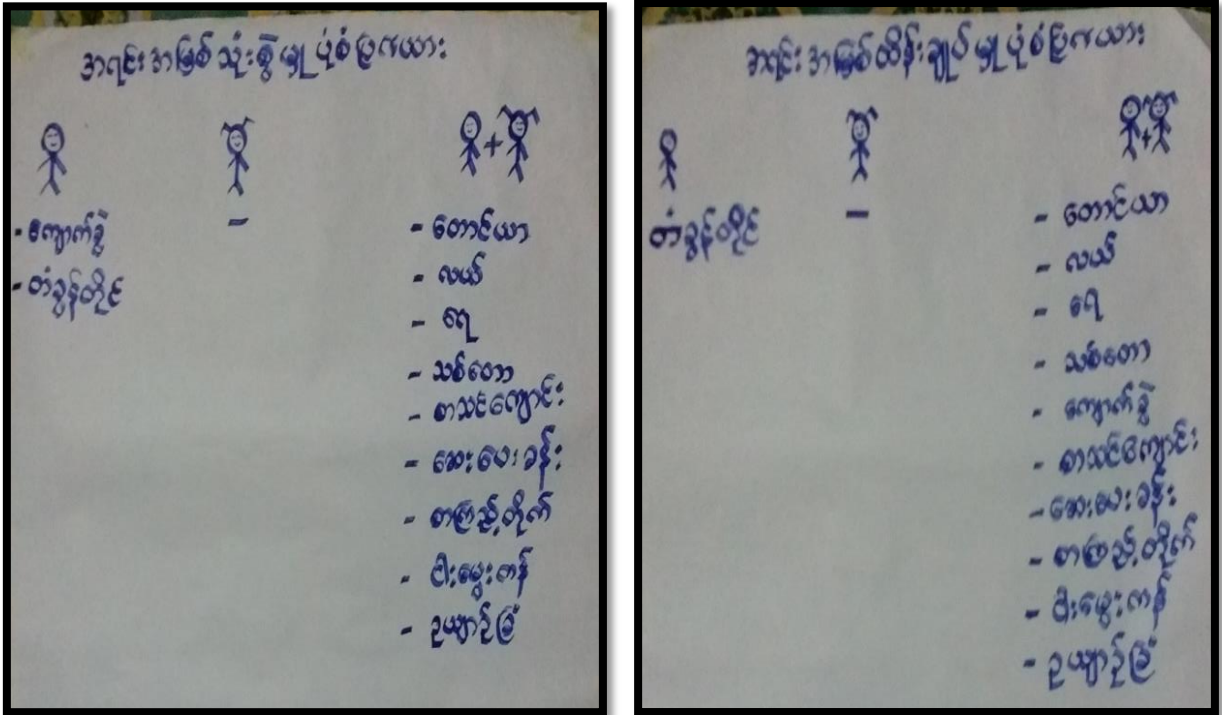 အရင်းအမြစ်သုံးစွဲမှုပုံစံပြဇယား
- ကျောက်ခွဲ
- တံခွန်တိုင်
-
- တောင်ယာ
- လယ်
- ရေ
- သစ်တော
- စာသင်ကျောင်း
- ဆေးပေးခန်း
- စာကြည့်တိုက်
- ငါးမွေးကန်
- ဥယျာဉ်ခြံ
အရင်းအမြစ်ထိန်းချုပ်မှုပုံစံပြဇယား
တံခွန်တိုင်
-
- တောင်ယာ
- လယ်
- ရေ
- သစ်တော
- ကျောက်ခွဲ
- စာသင်ကျောင်း
- ဆေးပေးခန်း
- စာကြည့်တိုက်
- ငါးမွေးကန်
- ဥယျာဉ်ခြံ